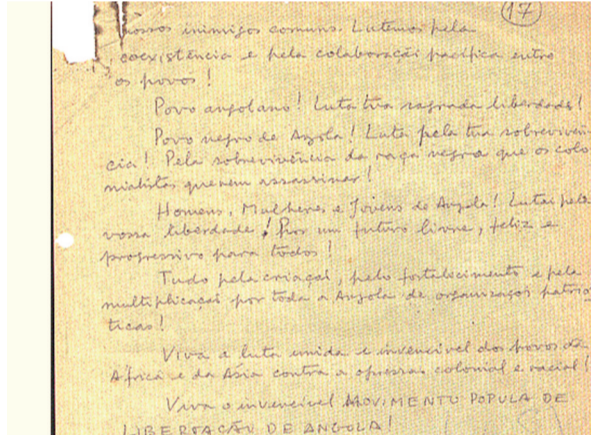 17
nossos inimigos comuns. Lutemos pela
coexistência e pela colaboração pacífica entre
os povos!
Povo angolano! Luta tua sagrada liberdade!
Povo negro de Angola! Luta pela tua sobrevivên-
cia! Pela sobrevivência da raça negra que os colo
nialistas querem assassinar!
Homens, Mulheres e Jovens de Angola! Lutai pela
vossa liberdade! Por um futuro livre, feliz e
progressivo para todos!
Tudo pela criação, pelo fortalecimento e pela
multiplicação por toda a Angola de organizações patrió
ticas!
Viva a luta unida e invencível dos povos da
África e da Ásia contra a opressão colonial e racial!
Viva o invencível MOVIMENTO POPULA DE
LIBERTAÇÃO DE ANGOLA!